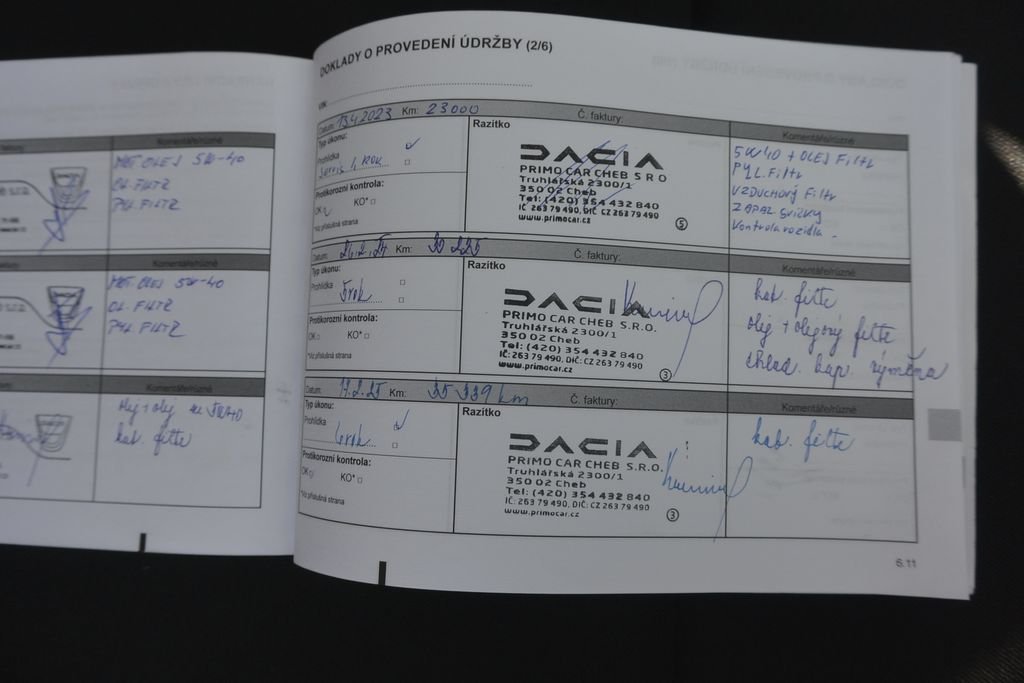 Komentáře/různé
MOT. OLEJ 5W-40
OL. FILTR
PYL. FILTR
Komentáře/různé
MOT. OLEJ 5W-40
OL. FILTR
PYL. FILTR
Komentáře/různé
kab. filtr
DOKLADY O PROVEDENÍ ÚDRŽBY (2/6)
VIN
Datum: 13.4.2023 Km: 23000 Č. faktury:
Typ úkonu:
Prohlídka
Servis 1. ROK
Protikorozní kontrola:
OK KO*
*Viz příslušná strana
Razítko
DACIA
PRIMO CAR CHEB S R O
Truhlářská 2300/1
350 02 Cheb
Tel: (420) 354 432 840
IČ: 263 79 490, DIČ: CZ 263 79 490
www.primocar.cz
5
Komentáře/různé
5W40 + OLEJ Filtr
PYL. Filtr
VZDUCHOVÝ Filtr
ZAPAL SVÍČKY
Kontrola vozidla
Datum: Km: Č. faktury:
Typ úkonu:
Prohlídka
Protikorozní kontrola:
OK KO*
*Viz příslušná strana
Razítko
DACIA
PRIMO CAR CHEB S.R.O.
Truhlářská 2300/1
350 02 Cheb
Tel: (420) 354 432 840
IČ: 263 79 490, DIČ: CZ 263 79 490
www.primocar.cz
3
Komentáře/různé
kab. filtr
olej + olejový filtr
chlad. kap. výměna
Datum: Km: 35 339 km Č. faktury:
Typ úkonu:
Prohlídka
Protikorozní kontrola:
OK KO*
*Viz příslušná strana
Razítko
DACIA
PRIMO CAR CHEB S.R.O.
Truhlářská 2300/1
350 02 Cheb
Tel: (420) 354 432 840
IČ: 263 79 490, DIČ: CZ 263 79 490
www.primocar.cz
3
Komentáře/různé
kab. filtr
6.11